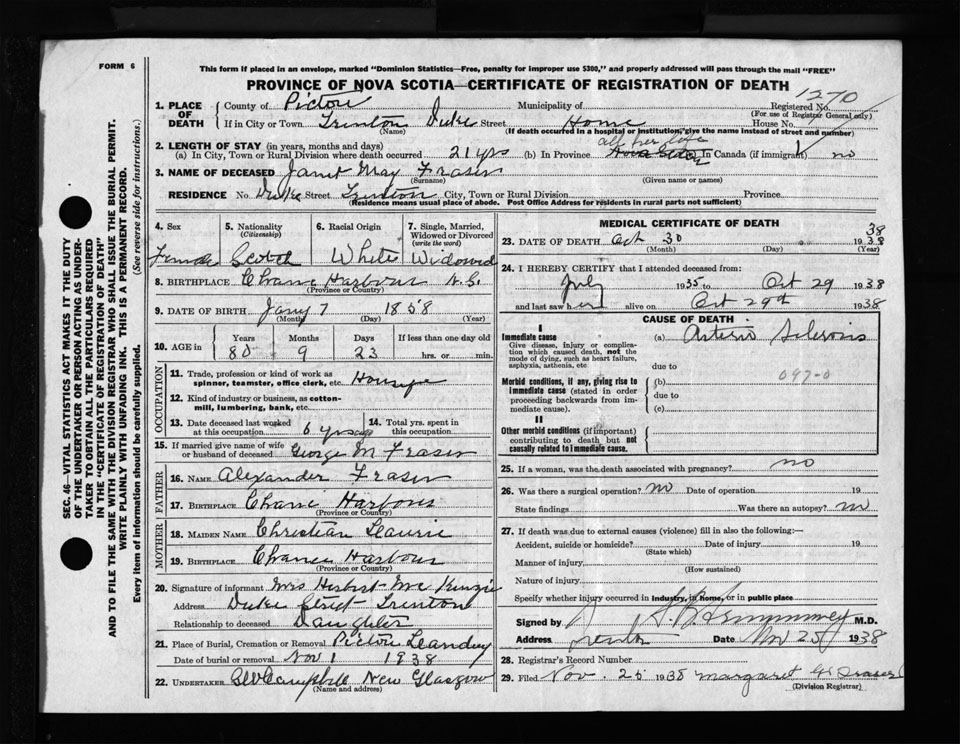 FORM 6
This form if placed in an envelope, marked "Dominion Statistics—Free, penalty for improper use $300," and properly addressed will pass through the mail "FREE"
PROVINCE OF NOVA SCOTIA—CERTIFICATE OF REGISTRATION OF DEATH
1270
1. PLACE OF DEATH
County of Pictou Municipality of Registered No.
(For use of Registrar General only)
If in City or Town Trenton Duke Street Home House No.
(Name) (If death occurred in a hospital or institution, give the name instead of street and number)
2. LENGTH OF STAY (in years, months and days) all her life
(a) In City, Town or Rural Division where death occurred 21 yrs (b) In Province Nova Scotia In Canada (if immigrant) no
3. NAME OF DECEASED Janet May Fraser
(Surname) (Given name or names)
RESIDENCE No. Duke Street Trenton City, Town or Rural Division Province
(Residence means usual place of abode. Post Office Address for residents in rural parts not sufficient)
4. Sex Female
5. Nationality (Citizenship) Scotch
6. Racial Origin White
7. Single, Married, Widowed or Divorced (write the word) Widowed
8. BIRTHPLACE Chance Harbour N.S.
(Province or Country)
9. DATE OF BIRTH Jany 7 1858
(Month) (Day) (Year)
10. AGE in Years Months Days If less than one day old
80 9 23 hrs. or min.
OCCUPATION
11. Trade, profession or kind of work as spinner, teamster, office clerk, etc.
12. Kind of industry or business, as cotton-mill, lumbering, bank, etc.
13. Date deceased last worked at this occupation 6 yrs ago
14. Total yrs. spent in this occupation
15. If married give name of wife or husband of deceased George M Fraser
FATHER
16. NAME Alexander Fraser
17. BIRTHPLACE Chance Harbour
(Province or Country)
MOTHER
18. MAIDEN NAME Christian
19. BIRTHPLACE Chance Harbour
(Province or Country)
20. Signature of informant Mrs Herbert McKenzie
Address Duke Street Trenton
Relationship to deceased Daughter
21. Place of Burial, Cremation or Removal Pictou Landing
Date of burial or removal Nov 1 1938
22. UNDERTAKER Campbell New Glasgow
(Name and address)
MEDICAL CERTIFICATE OF DEATH
23. DATE OF DEATH Oct 30 1938
(Month) (Day) (Year)
24. I HEREBY CERTIFY that I attended deceased from:
July 1935 to Oct 29 1938
and last saw her alive on Oct 29th 1938
CAUSE OF DEATH
I
Immediate cause (a) Arterio Sclerosis
Give disease, injury or complication which caused death, not the mode of dying, such as heart failure, asphyxia, asthenia, etc
due to
097-0
Morbid conditions, if any, giving rise to immediate cause (stated in order proceeding backwards from immediate cause). (b)
due to
(c)
II
Other morbid conditions (if important) contributing to death but not causally related to immediate cause.
25. If a woman, was the death associated with pregnancy? no
26. Was there a surgical operation? no Date of operation 19
State findings Was there an autopsy? no
27. If death was due to external causes (violence) fill in also the following:—
Accident, suicide or homicide? Date of injury 19
(State which)
Manner of injury
(How sustained)
Nature of injury
Specify whether injury occurred in industry, in home, or in public place
Signed by M.D.
Address Trenton Date Nov 25 1938
28. Registrar's Record Number
29. Filed Nov. 25 1938 Margaret Fraser
(Division Registrar)
SEC. 46—VITAL STATISTICS ACT MAKES IT THE DUTY
OF THE UNDERTAKER OR PERSON ACTING AS UNDERTAKER TO OBTAIN ALL THE PARTICULARS REQUIRED
IN THE "CERTIFICATE OF REGISTRATION OF DEATH"
AND TO FILE THE SAME WITH THE DIVISION REGISTRAR WHO SHALL ISSUE THE BURIAL PERMIT.
WRITE PLAINLY WITH UNFADING INK. THIS IS A PERMANENT RECORD.
Every item of information should be carefully supplied. (See reverse side for instructions.)